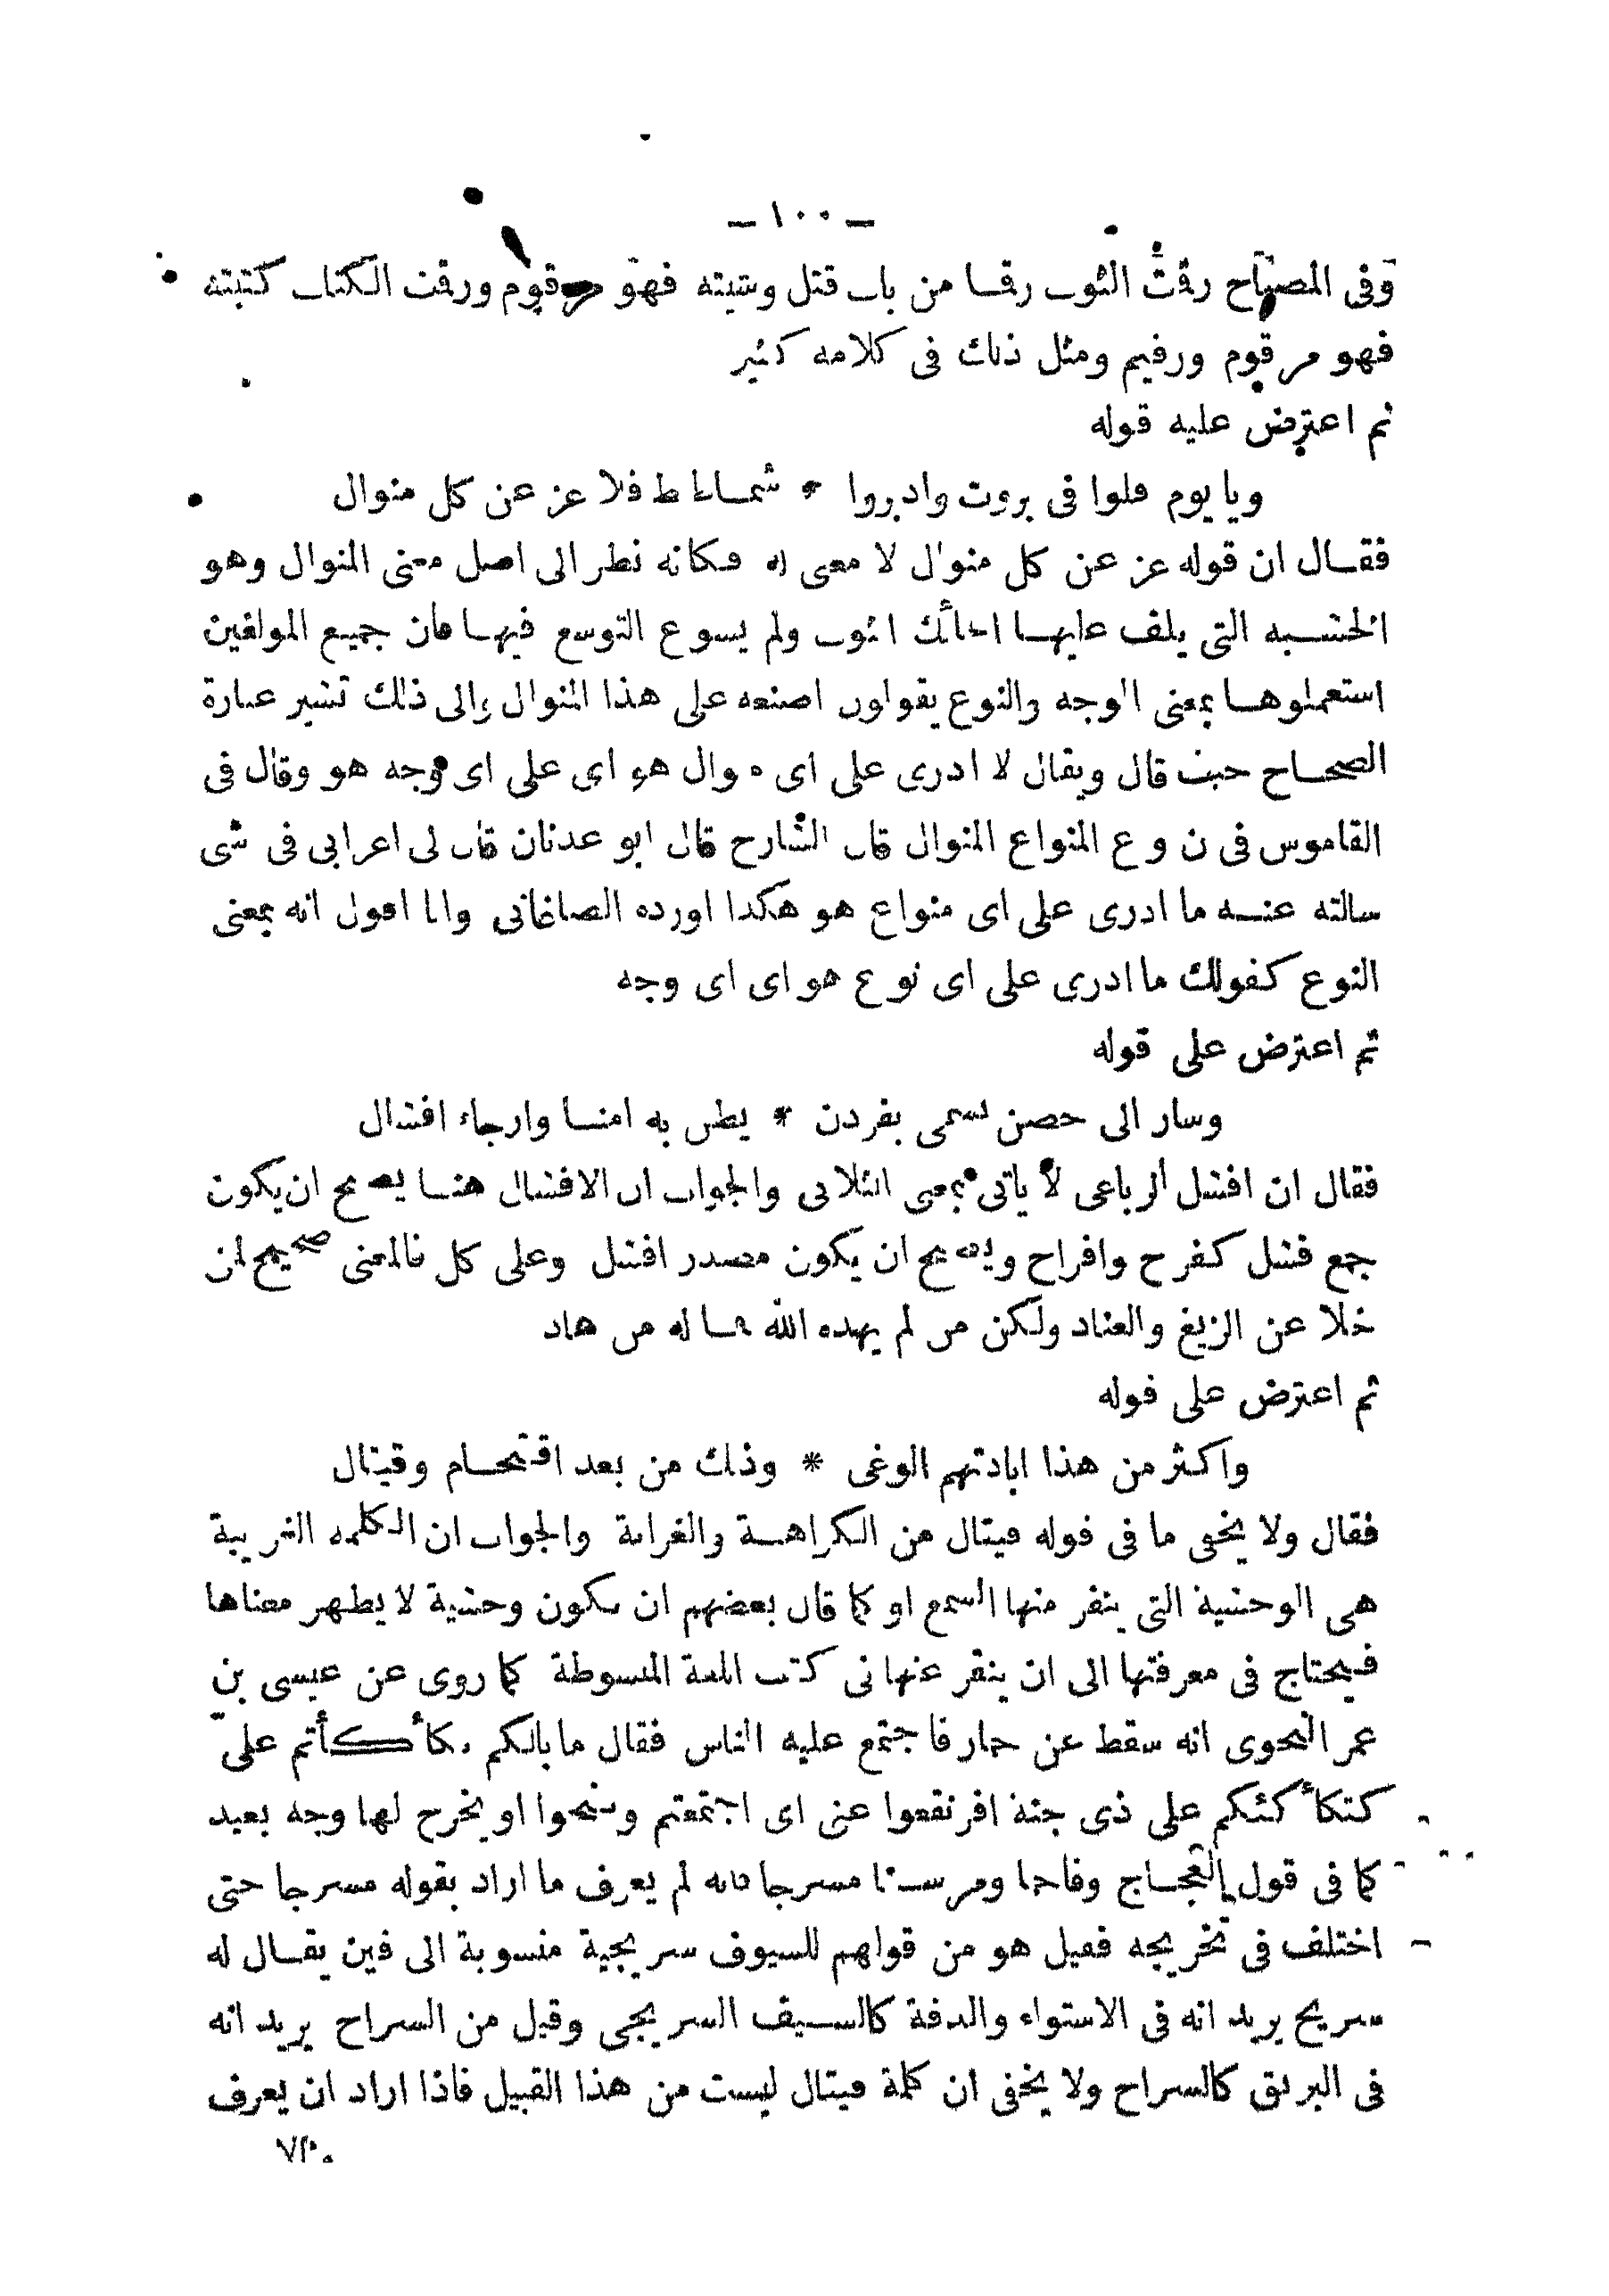 — ١٠٠ —
وفى المصباح رقمت الثوب رقمـا من باب قتل وشيته فهو مرقوم ورقمت الكتاب كتبته
فهو مرقوم ورقيم ومثل ذلك فى كلامه كثير
ثم اعترض عليه قوله
ويا يوم فلوا فى بروت وادبروا * شمـاطاط فلا عز عن كل منوال
فقـال ان قوله عز عن كل منوال لا معنى له فكانه نظر الى اصل معنى المنوال وهو
الخشـبه التى يلف عليهـا الحائك الثوب ولم يسوع التوسع فيهـا فان جميع المولفين
استعملوهـا بمعنى الوجه والنوع يقولون اصنعه على هذا المنوال والى ذلك تشير عبارة
الصحـاح حيث قال ويقال لا ادرى على اى منوال هو اى على اى وجه هو وقال فى
القاموس فى ن و ع المنواع المنوال قال الشارح قال ابو عدنان قال لى اعرابى فى شى
سالته عنـه ما ادرى على اى منواع هو هكذا اورده الصاغانى وانا اقول انه بمعنى
النوع كقولك ما ادرى على اى نوع هو اى اى وجه
ثم اعترض على قوله
وسار الى حصن تسمى بفردن * يظن به امنـا وارجاء افشال
فقال ان افشل الرباعى لا ياتى بمعنى الثلاثى والجواب ان الافشال هنـا يصح ان يكون
جمع فشل كفرح وافراح ويصح ان يكون مصدر افشل وعلى كل فالمعنى صحيح لمن
خلا عن الزيغ والعناد ولكن من لم يهده الله فمـا له من هاد
ثم اعترض على قوله
واكثر من هذا ابادتهم الوغى * وذلك من بعد اقتحـام وقيتال
فقال ولا يخفى ما فى قوله قيتال من الكراهـة والغرابة والجواب ان الكلمه الغريبة
هى الوحشية التى ينفر منها السمع او كما قال بعضهم ان تكون وحشية لا يظهر معناها
فيحتاج فى معرفتها الى ان ينقر عنها فى كتب اللغة المبسوطة كما روى عن عيسى بن
عمر النحوى انه سقط عن حمار فاجتمع عليه الناس فقال ما بالكم تكأكأتم علىّ
كتكأكئكم على ذى جنة افرنقعوا عنى اى اجتمعتم وتنحوا او يخرح لها وجه بعيد
كما فى قول العجـاج وفاحما ومرسـنا مسرجا فانه لم يعرف ما اراد بقوله مسرجا حتى
اختلف فى تخريجه فقيل هو من قولهم للسيوف سريجية منسوبة الى قين يقـال له
سريج يريد انه فى الاستواء والدقة كالسـيف السريجى وقيل من السراح يريد انه
فى البريق كالسراح ولا يخفى ان كلمة قيتال ليست من هذا القبيل فاذا اراد ان يعرف